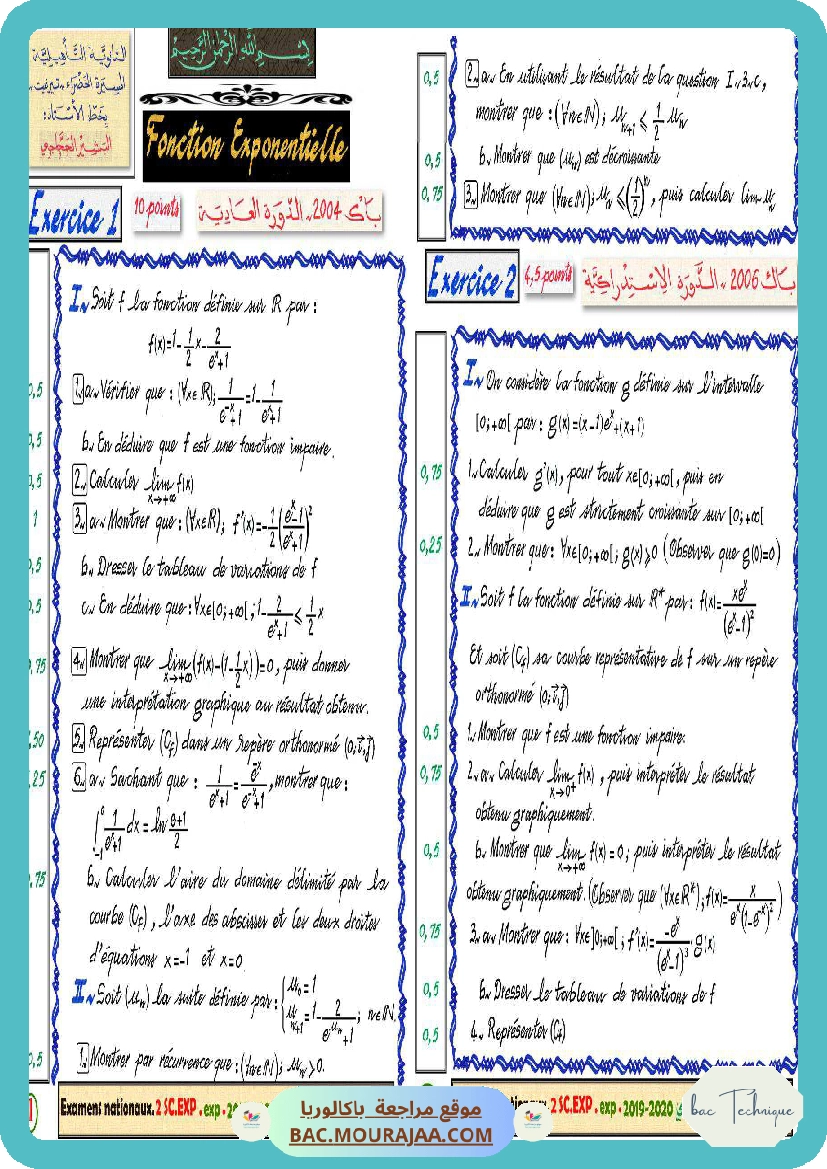 الثانوية التأهيلية
المسيرة الخضراء، تيزنيت،
بخط الأستاذ:
بسم الله الرحمن الرحيم
Fonction Exponentielle
Exercice 1
10 points
باك 2004، الدورة العادية
I. Soit f la fonction définie sur ℝ par :
f(x)=1-1/2 x-2/(eˣ+1)
0,5 1. a. Vérifier que : (∀x∈ℝ); 1/(e⁻ˣ+1)=1-1/(eˣ+1)
0,5 b. En déduire que f est une fonction impaire.
0,5 2. Calculer lim x→+∞ f(x)
1 3. a. Montrer que : (∀x∈ℝ); f'(x)=-1/2((eˣ-1)/(eˣ+1))²
0,5 b. Dresser le tableau de variations de f
0,5 c. En déduire que : ∀x∈[0;+∞[ ; 1-2/(eˣ+1) ⩽ 1/2 x
,75 4. Montrer que lim x→+∞ (f(x)-(1-1/2 x))=0 , puis donner
une interprétation graphique au résultat obtenu.
,50 5. Représenter (Cf) dans un repère orthonormé (o;i⃗,j⃗)
,25 6. a. Sachant que : 1/(eˣ+1)=e⁻ˣ/(e⁻ˣ+1) , montrer que :
∫₋₁⁰ 1/(eˣ+1) dx = ln (e+1)/2
,75 b. Calculer l'aire du domaine délimité par la
courbe (Cf) , l'axe des abscisses et les deux droites
d'équations x=-1 et x=0
II. Soit (uₙ) la suite définie par : { u₀=1
uₙ₊₁=1-2/(e^uₙ+1) ; n∈ℕ
0,5 1. Montrer par récurrence que : (∀n∈ℕ); uₙ>0.
0,5 2. a. En utilisant le résultat de la question I.3.c,
montrer que : (∀n∈ℕ) ; uₙ₊₁ ⩽ 1/2 uₙ
0,5 b. Montrer que (uₙ) est décroissante
0,75 3. Montrer que (∀n∈ℕ); uₙ ⩽(1/2)ⁿ , puis calculer lim uₙ
Exercice 2
4,5 points
باك 2006، الدورة الاستدراكية
I. On considère la fonction g définie sur l'intervalle
[0;+∞[ par : g(x)=(x-1)eˣ+(x+1)
0,75 1. Calculer g'(x), pour tout x∈[0;+∞[ , puis en
déduire que g est strictement croissante sur [0;+∞[
0,25 2. Montrer que : ∀x∈[0;+∞[ ; g(x)⩾0 (Observer que g(0)=0)
II. Soit f la fonction définie sur ℝ* par : f(x)=xeˣ/(eˣ-1)²
Et soit (Cf) sa courbe représentative de f sur un repère
orthonormé (o;i⃗,j⃗)
0,5 1. Montrer que f est une fonction impaire.
0,75 2. a. Calculer lim x→0⁺ f(x) , puis interpréter le résultat
obtenu graphiquement.
0,5 b. Montrer que lim x→+∞ f(x)=0 ; puis interpréter le résultat
obtenu graphiquement. (Observer que (∀x∈ℝ*); f(x)=x/(eˣ(1-e⁻ˣ)²))
0,75 3. a. Montrer que : ∀x∈]0;+∞[ ; f'(x)=-eˣ/(eˣ-1)³ g(x)
0,5 b. Dresser le tableau de variations de f
0,5 4. Représenter (Cf)
Examens nationaux. 2 SC.EXP . exp
2 SC.EXP . exp . 2019-2020
موقع مراجعة باكالوريا
BAC.MOURAJAA.COM
bac Technique